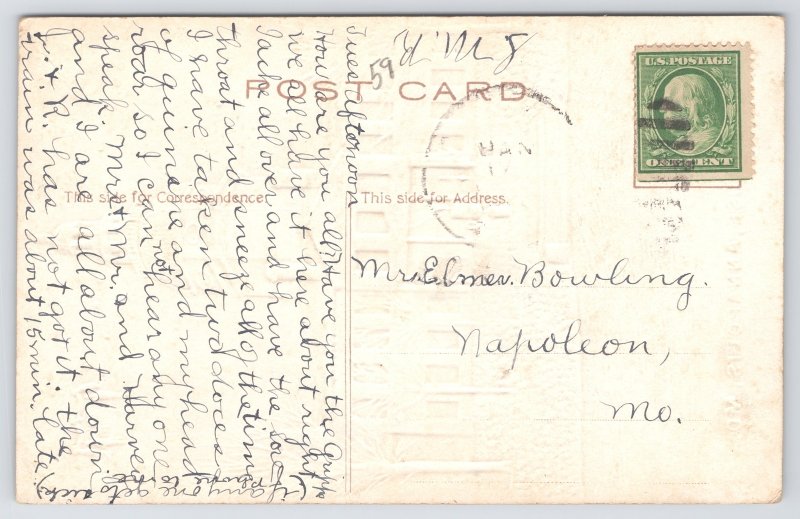 H.M.G
59
POST CARD
U.S. POSTAGE
ONE CENT
JAN
This side for Correspondence.
This side for Address.
Mr. Elmer Bowling.
Napoleon,
Mo.
Tues afternoon
How are you all? Have you the Gripp
we all have it here about right. I
I ache all over and have the sore
throat and sneeze all of the time
I have taken two doces
of quinane and my head
roar so I can not hear any one
speak. Mr. & Mrs. and Harvey
and I are all about down.
J. & R. has not got it. the
train was about 15 min. late.